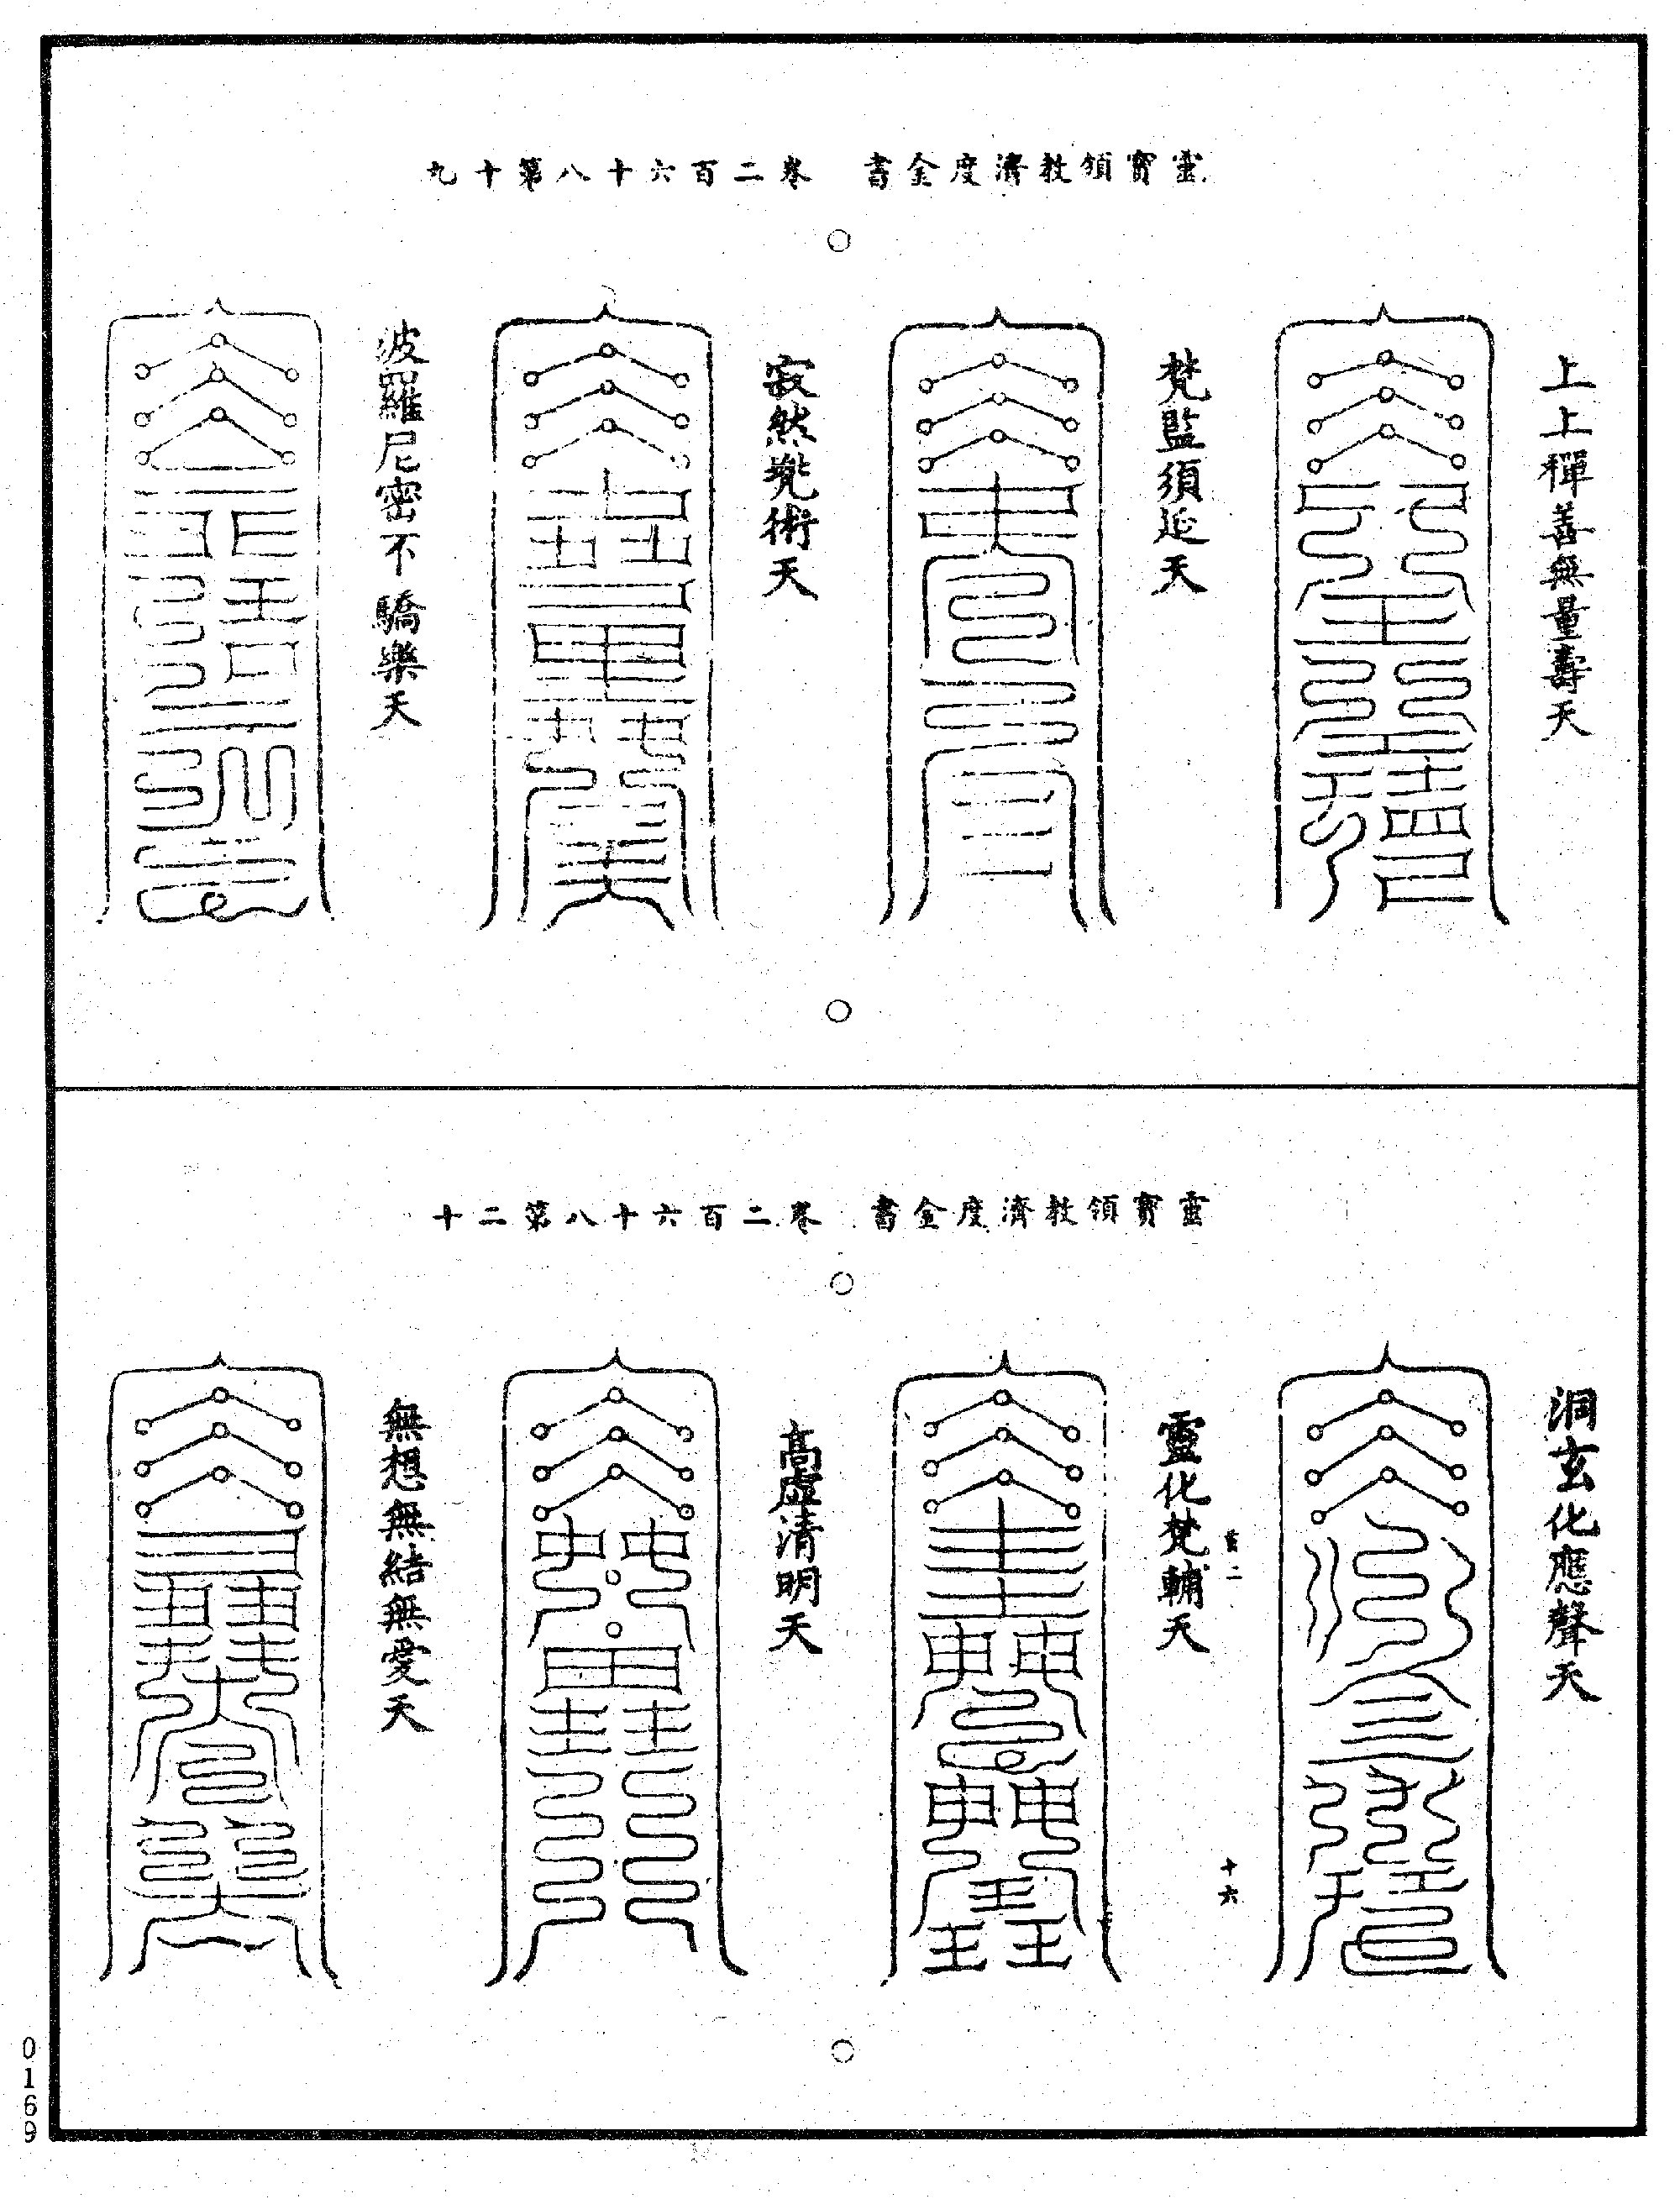 靈寶領教濟度金書　卷二百六十八第十九
上上禪善無量壽天
梵監須延天
寂然兠術天
波羅尼密不驕樂天
靈寶領教濟度金書　卷二百六十八第二十
洞玄化應聲天
二
十六
靈化梵輔天
高虛清明天
無想無結無愛天
0169